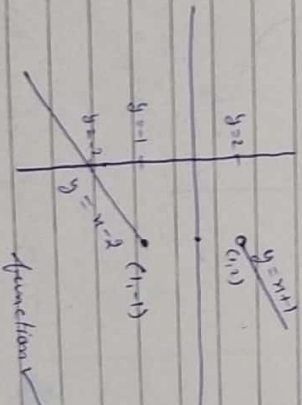 y = x+1
(1,2)
y=2
y=-1
(1,-1)
y=-2
y = x-2
function ✓